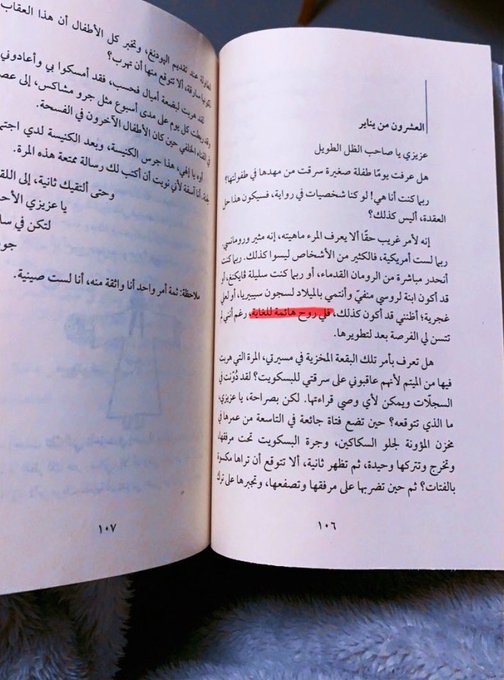 العشرون من يناير
عزيزي يا صاحب الظل الطويل
هل عرفت يومًا طفلة صغيرة سرقت من مهدها في طفولتها؟
ربما كنت أنا هي! لو كنا شخصيات في رواية، فسيكون هذا حل
العقدة، أليس كذلك؟
إنه لأمر غريب حقًا ألا يعرف المرء ماهيته، إنه مثير ورومانسي.
ربما لست أمريكية، فالكثير من الأشخاص ليسوا كذلك. ربما
أنحدر مباشرة من الرومان القدماء، أو ربما كنت سليلة فايكنغ، أو
قد أكون ابنة لروسي منفيّ وأنتمي بالميلاد لسجون سيبيريا، أو لعلي
غجرية؛ أظنني قد أكون كذلك، فلي روح هائمة للغاية، رغم أنني لم
تتسن لي الفرصة بعد لتطويرها.
هل تعرف بأمر تلك البقعة المخزية في مسيرتي، المرة التي هربت
فيها من الميتم لأنهم عاقبوني على سرقتي للبسكويت؟ لقد دُوّنت في
السجلّات ويمكن لأي وصي قراءتها. لكن بصراحة، يا عزيزي،
ما الذي تتوقعه؟ حين تضع فتاة جائعة في التاسعة من عمرها في
مخزن المؤونة لجلو السكاكين، وجرة البسكويت تحت مرفقها،
وتخرج وتتركها وحيدة، ثم تظهر ثانية، ألا تتوقع أن تراها مكسوة
بالفتات؟ ثم حين تضربها على مرفقها وتصفعها، وتجبرها على ترك
١٠٦
عند تقديم اليودنغ، وتخبر كل الأطفال أن هذا العقاب
سارقة، ألا تتوقع منها أن تهرب؟
هربت لبضعة أميال فحسب، فقد أمسكوا بي وأعادوني
كل يوم على مدى أسبوع مثل جرو مشاكس، إلى
حين كان الأطفال الآخرون في الفسحة.
يا إلهي، هذا جرس الكنيسة، وبعد الكنيسة لدي
أنا آسفة لأني نويت أن أكتب لك رسالة ممتعة هذه المرة.
وحتى ألتقيك ثانية، إلى
يا عزيزي
لتكن في
ملاحظة: ثمة أمر واحد أنا واثقة منه، أنا لست صينية.
١٠٧